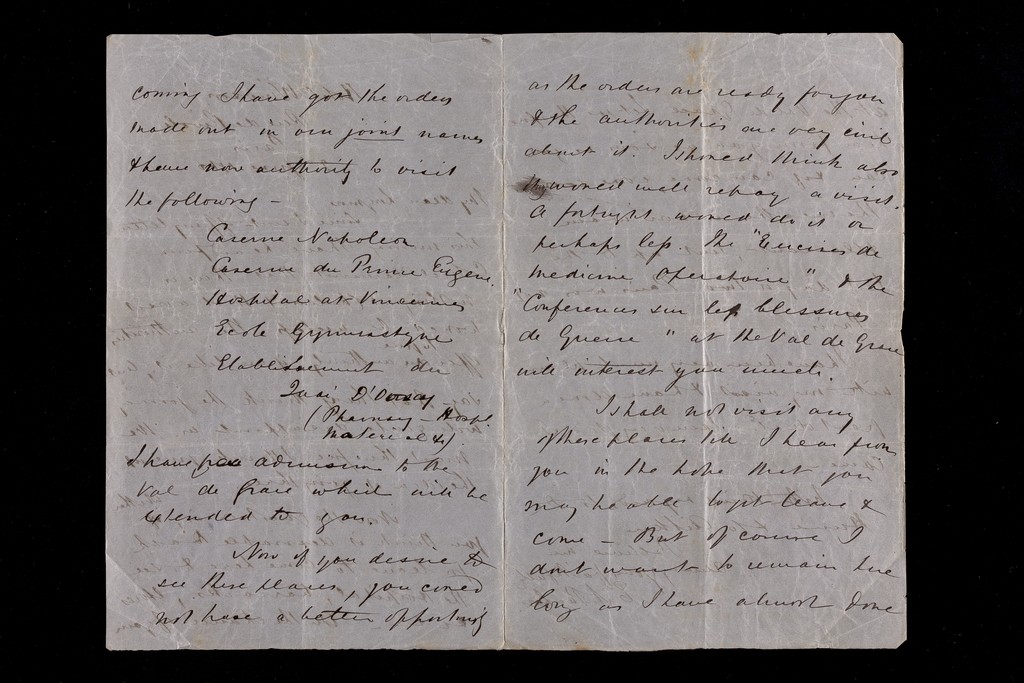 coming I have got the orders
made out in our joint names
& have now authority to visit
the following -
Caserne Napoleon
Caserne du Prince Eugene.
Hospital at Vincennes
Ecole Gymnastique
Etablissement du
Quai D'Orsay
(Pharmacy - Hospl
Material &c).
I have free admission to the
Val de Grace which will be
extended to you.
Now if you desire to
see these places, you could
not have a better opportunity
as the orders are ready for you
& the authorities are very civil
about it. I should think also
they would well repay a visit.
A fortnight would do it or
perhaps less. The "Exercises de
medicine operatoire" & the
"Conferences sur les blessures
de Guerre" at the Val de Grace
will interest you much.
I shall not visit any
of these places till I hear from
you in the hope that you
may be able to get leave &
come - But of course I
dont want to remain here
long as I have almost done